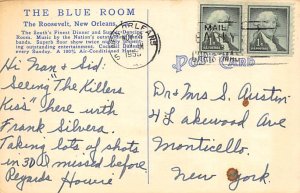 THE BLUE ROOM
The Roosevelt, New Orleans,
The South's Finest Dinner and Supper-Dancing
Rooms. Music by the Nation's outstanding dance
bands. Supper floor show twice nightly,
ing outstanding entertainment. Cocktail
every Sunday. A 100% Air-Conditioned Hotel.
ORLEANS
1955
MAIL
POST CARD
Hi Nan & Sid:
Seeing "The Killers
Kiss" here with
Frank Silvera.
Taking lots of shots
in 3D I missed before
Regards Howie
Dr & Mrs S. Austin
4 Lakewood Ave
Monticello,
New York.